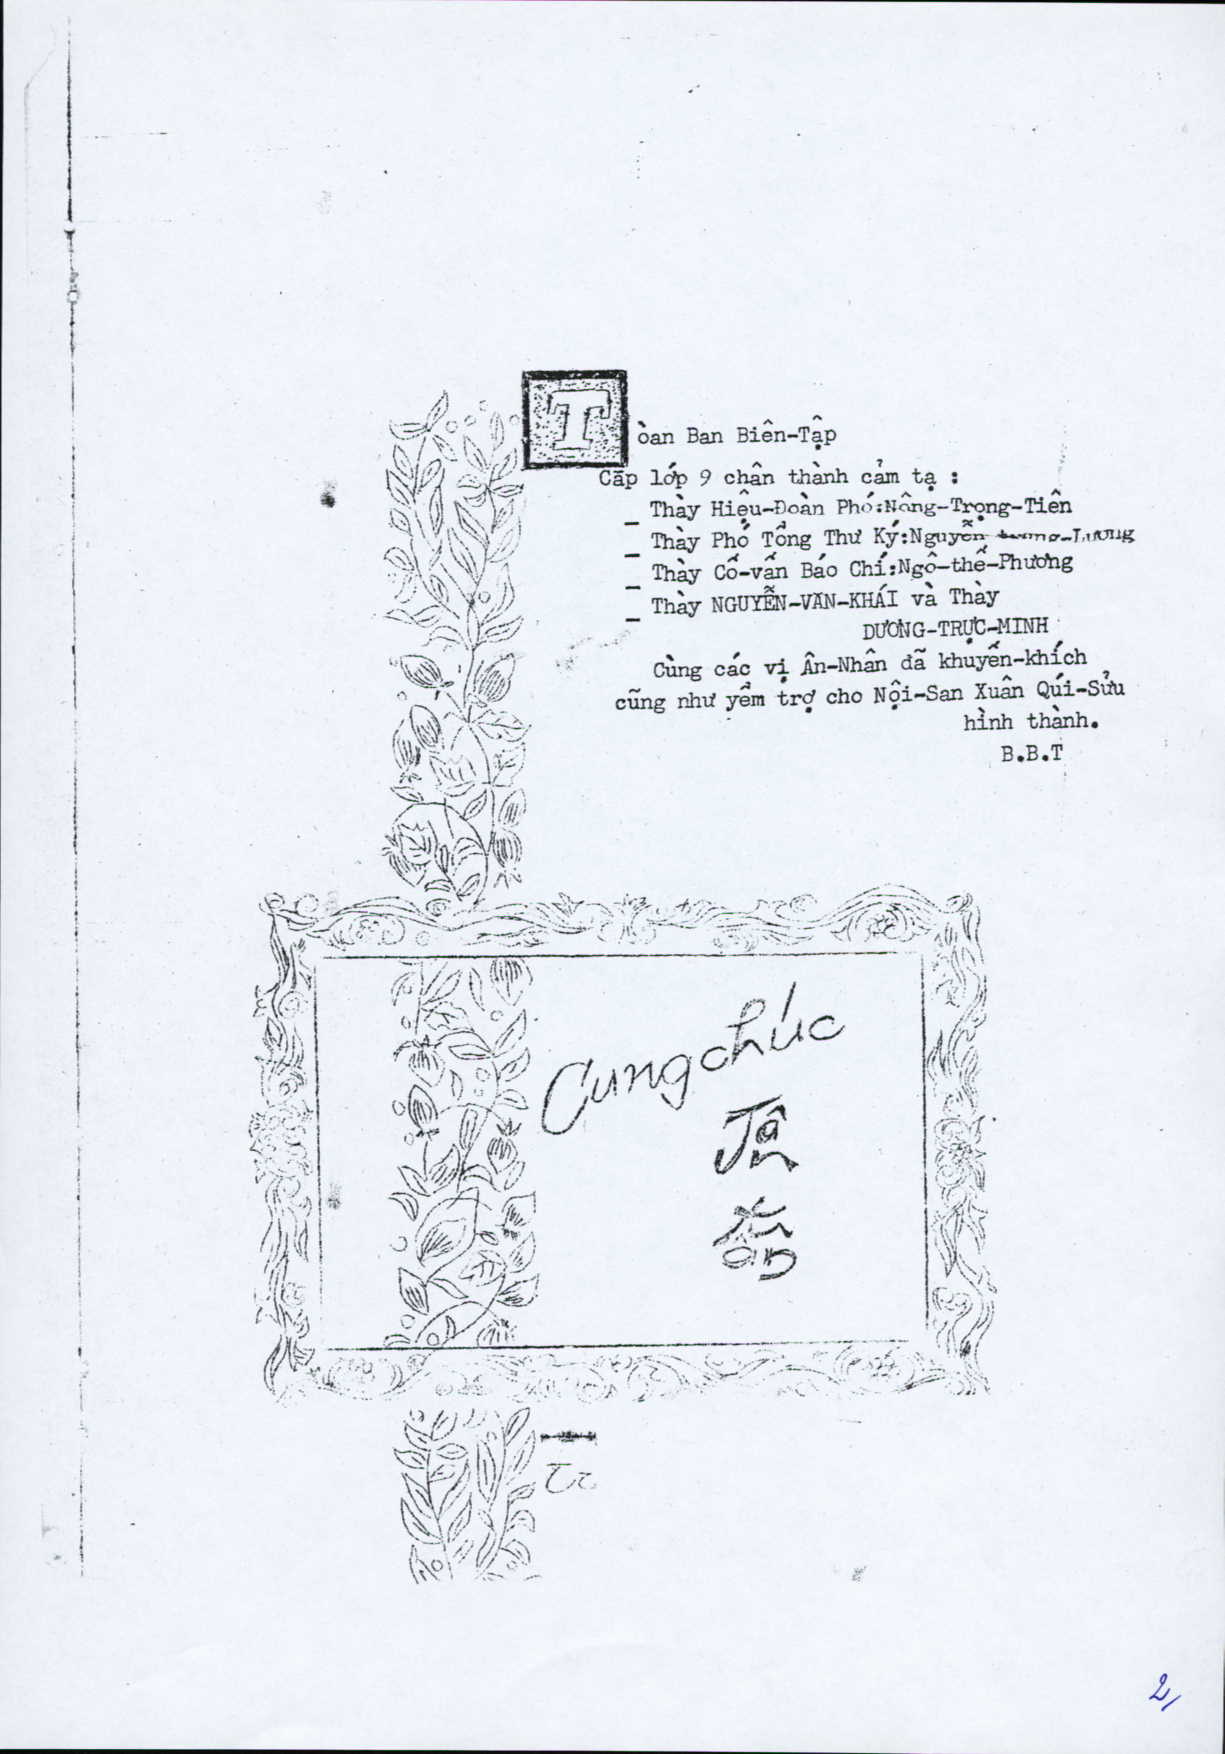 Tòan Ban Biên-Tập
Cấp lớp 9 chân thành cảm tạ :
_ Thày Hiệu-Đoàn Phó:Nông-Trọng-Tiên
_ Thày Phó Tổng Thư Ký:Nguyễn
_ Thày Cố-vấn Báo Chí:Ngô-thế-Phương
_ Thày NGUYỄN-VĂN-KHÁI và Thày
DƯƠNG-TRỰC-MINH
Cùng các vị Ân-Nhân đã khuyến-khích
cũng như yểm trợ cho Nội-San Xuân Qúi-Sửu
hình thành.
B.B.T
Cung chúc
Tân
Xuân
2/